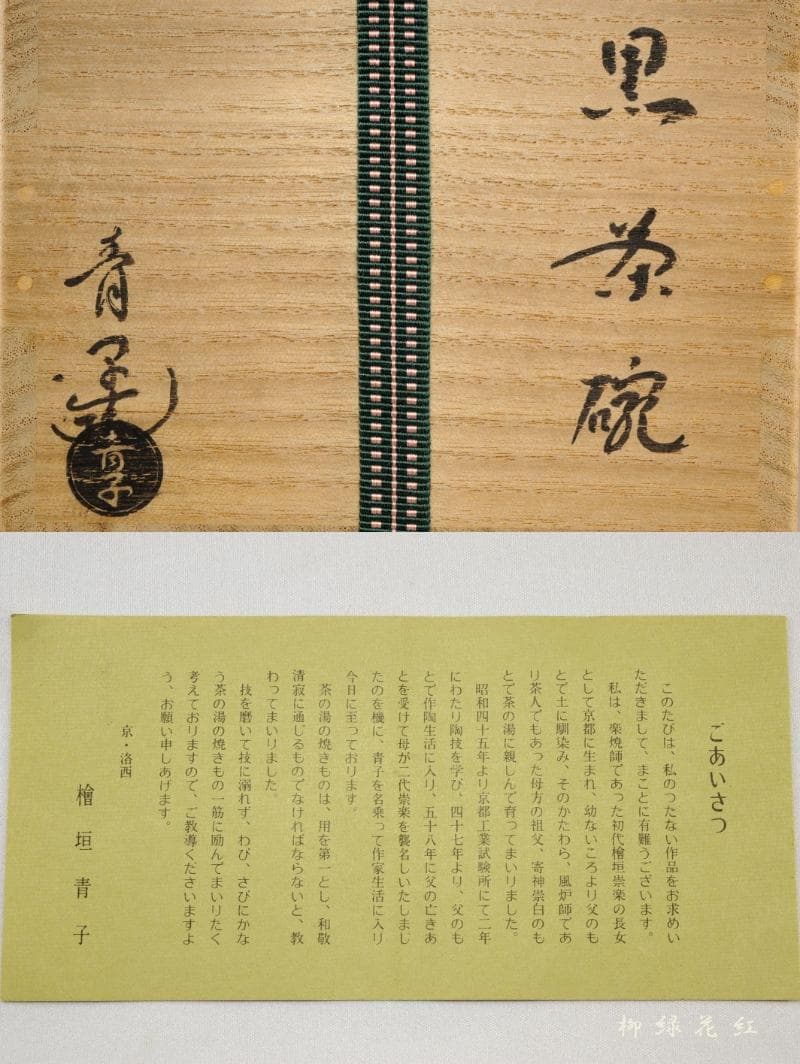 黒茶碗
青子造
青子
ごあいさつ
このたびは、私のつたない作品をお求めい
ただきまして、まことに有難うございます。
私は、楽焼師であった初代檜垣崇楽の長女
として京都に生まれ、幼ないころより父のも
とで土に馴染み、そのかたわら、風炉師であ
り茶人でもあった母方の祖父、寄神崇白のも
とで茶の湯に親しんで育ってまいりました。
昭和四十五年より京都工業試験所にて二年
にわたり陶技を学び、四十七年より、父のも
とで作陶生活に入り、五十八年に父の亡きあ
とを受けて母が二代崇楽を襲名しいたしまし
たのを機に、青子を名乗って作家生活に入り
今日に至っております。
茶の湯の焼きものは、用を第一とし、和敬
清寂に通じるものでなければならないと、教
わってまいりました。
技を磨いて技に溺れず、わび、さびにかな
う茶の湯の焼きもの一筋に励んでまいりたく
考えておりますので、ご教導くださいますよ
う、お願い申しあげます。
京・洛西
檜垣青子
柳緑花紅